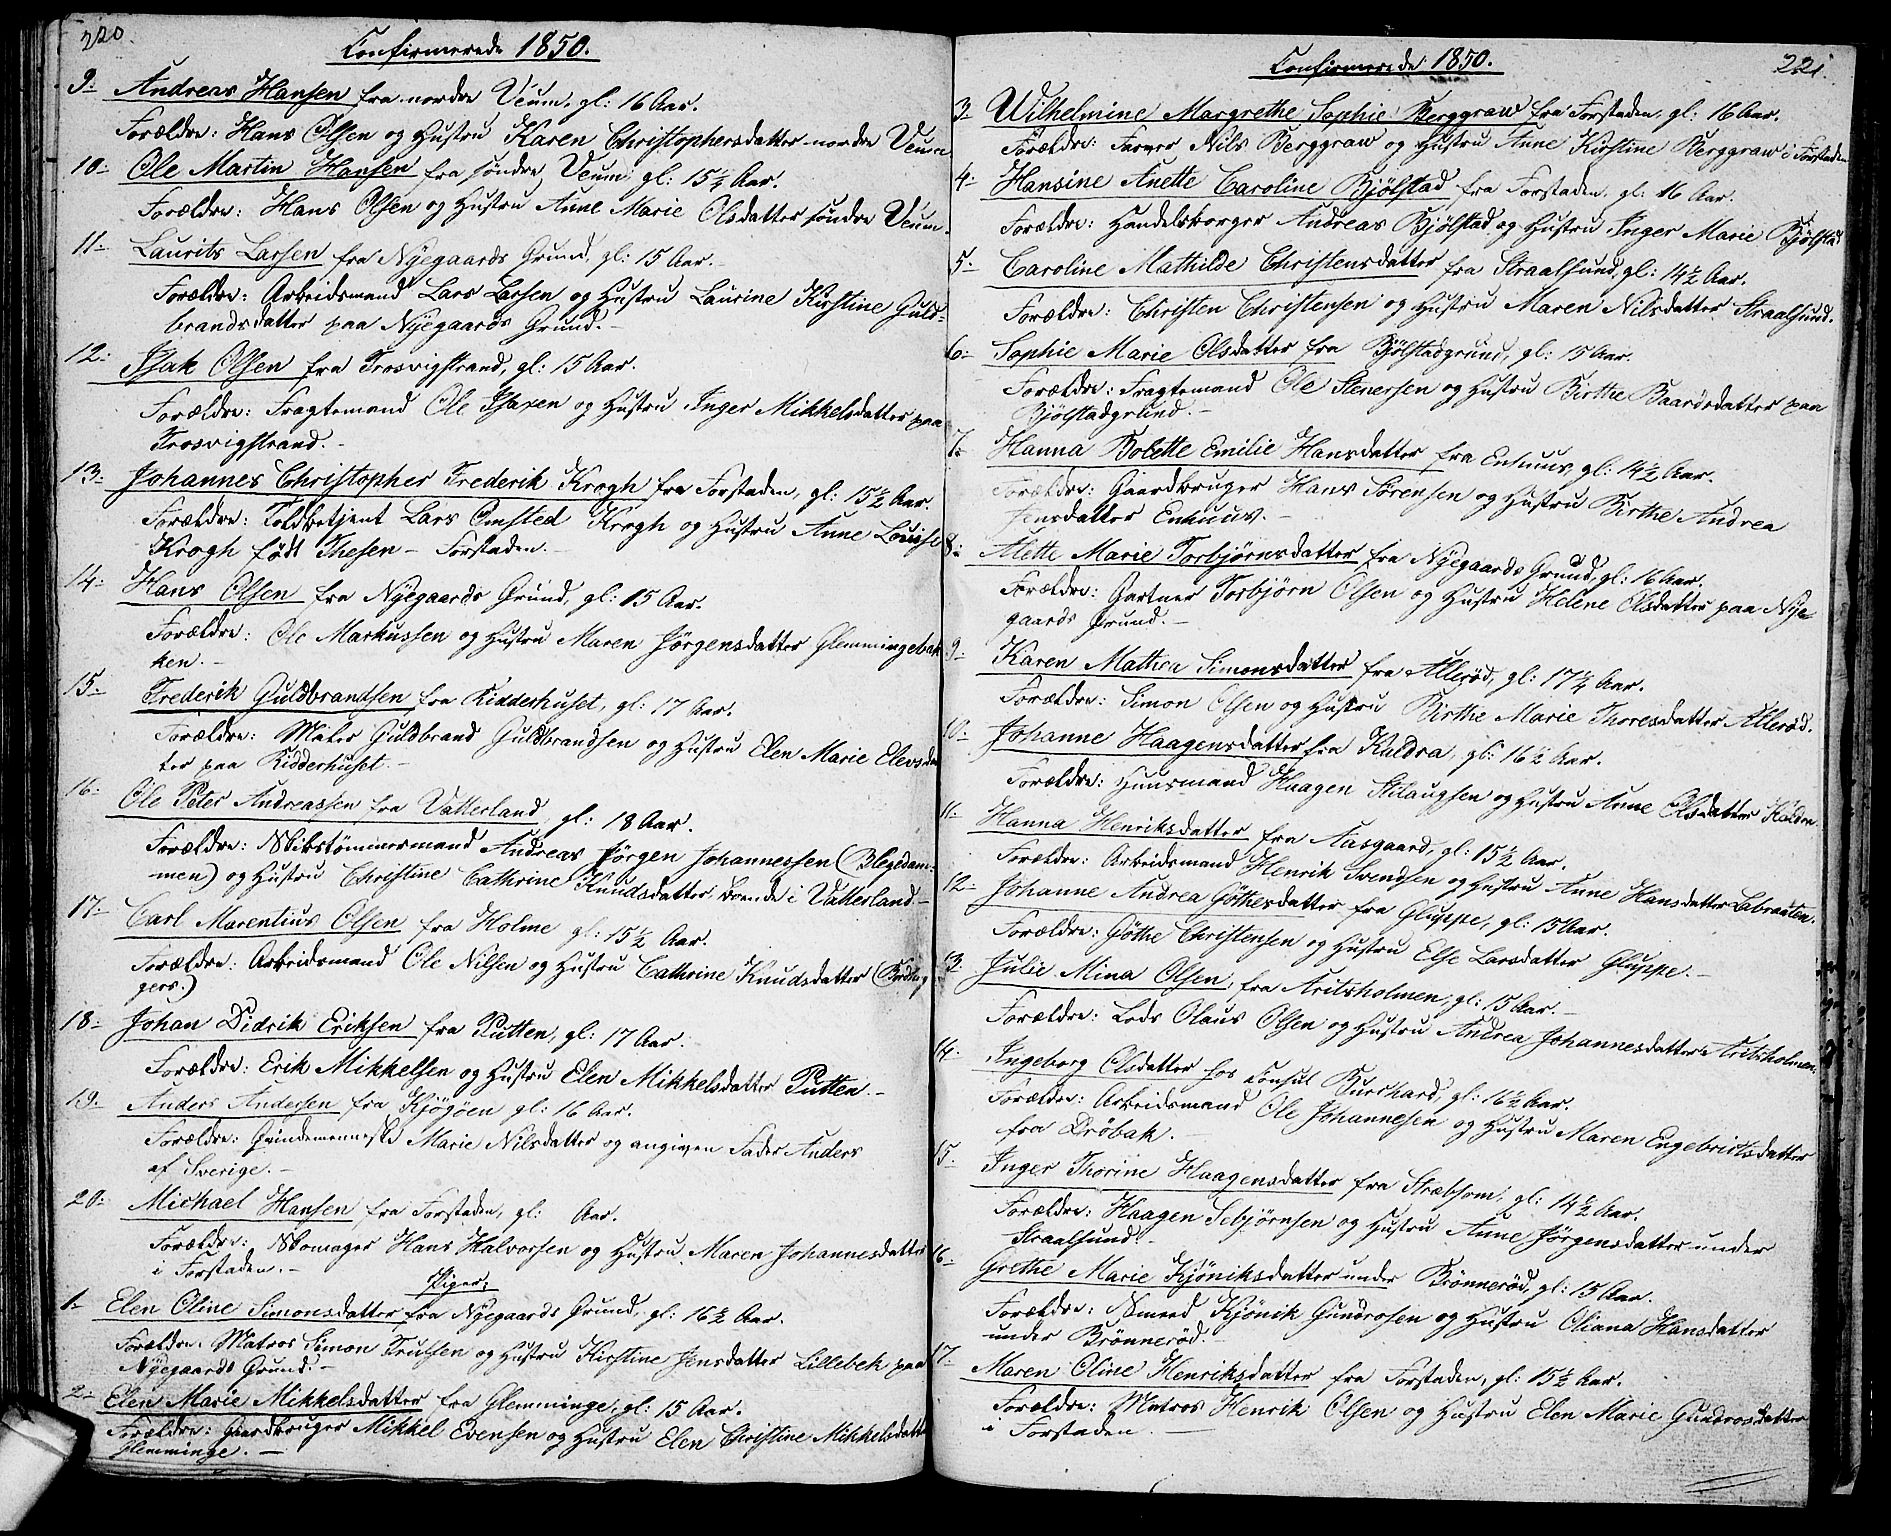 220.
Confirmerede 1850.
9: Andreas Hansen fra nordre Veum, gl: 16 Aar.
Forældre: Hans Olsen og Hustru Karen Christophersdatter nordre Veum
10- Ole Martin Hansen fra søndre Veum, gl: 15¼ Aar.
Forældre: Hans Olsen og Hustru Anne Marie Olsdatter søndre Veum.
11- Laurits Larsen fra Nyegaards Grund, gl: 15 Aar.-
Forældre: Arbeidsmand Lars Larsen og Hustru Laurine Kirstine Guld-
brandsdatter paa Nyegaards Grund.-
12: Isak Olsen fra Trosvigstrand, gl: 15 Aar.
Forældre: Fragtemand Ole Isaxen og Hustru Inger Mikkelsdatter paa
Trosvigstrand.-
13- Johannes Christopher Frederik Krogh fra Forstaden, gl: 15½ Aar.
Forældre: Toldbetjent Lars Omsted Krogh og Hustru Anne Louise
Krogh født Thesen - Forstaden.-
14: Hans Olsen fra Nyegaards Grund, gl: 15 Aar.
Forældre: Ole Markussen og Hustru Maren Jörgensdatter Glemmingebak
ken.-
15- Frederik Guldbrandsen fra Kidderhuset, gl: 17 Aar.
Forældre: Maler Guldbrand Guldbrandsen og Hustru Elen Marie Elevsdat
ter paa Kidderhuset.-
16: Ole Peter Andreassen fra Vatterland, gl: 18 Aar.
Forældre: Skibstömmermand Andreas Jörgen Johannessen (Blegedam-
men) og Hustru Christine Cathrine Knudsdatter, boende i Vatterland.-
17- Carl Marentius Olsen fra Holme gl: 15½ Aar.
Forældre: Arbeidsmand Ole Nilsen og Hustru Cathrine Knudsdatter
gers)
18- Johan Didrik Eriksen fra Putten, gl: 17 Aar.
Forældre: Erik Mikkelsen og Hustru Elen Mikkelsdatter Putten.-
19. Anders Andersen fra Kjögöen gl: 16 Aar.
Forældre: Qvindemenneske Marie Nilsdatter og angiven Fader Anders
af Sverige.-
20: Michael Hansen fra Forstaden, gl: Aar.
Forældre: Skomager Hans Halvorsen og Hustru Maren Johannesdatter
i Forstaden.-
Piger:
1- Elen Oline Simonsdatter fra Nyegaards Grund, gl: 16½ Aar.
Forældre: Matros Simon Trulsen og Hustru Kirstine Jensdatter Lillebek paa
Nyegaards Grund.-
2- Elen Marie Mikkelsdatter fra Glemminge, gl: 15 Aar.
Forældre: Gaardbruger Mikkel Evensen og Hustru Elen Christine Mikkelsdatter
Glemminge.-
221.
Confirmerede 1850.
3- Wilhelmine Margrethe Sophie Berggraw fra Forstaden, gl: 16 Aar.
Forældre: Farver Nils Berggraw og Hustru Anne Kirstine Berggraw i Forstaden
4- Hansine Anette Caroline Bjölstad fra Forstaden, gl: 16 Aar.
Forældre: Handelsborger Andreas Bjölstad og Hustru Inger Marie Bjölstad
5- Caroline Mathilde Christensdatter fra Straalsund, gl: 14½ Aar.
Forældre: Christen Christensen og Hustru Maren Nilsdatter Straalsund.
6- Sophie Marie Olsdatter fra Bjölstadgrund, gl: 15 Aar.
Forældre: Fragtemand Ole Stenersen og Hustru Birthe Baardsdatter paa
Bjölstadgrund.-
7- Hanna Bolette Emilie Hansdatter fra Enhuus, gl: 14½ Aar.
Forældre: Gaardbruger Hans Sörensen og Hustru Birthe Andrea
Jensdatter Enhuus.-
8- Alette Marie Torbjörnsdatter fra Nyegaards Grund, gl: 16 Aar.
Forældre: Gartner Torbjörn Olsen og Hustru Helene Olsdatter paa Nye
gaards Grund.-
9- Karen Mathea Simonsdatter fra Alleröd, gl: 17¼ Aar.
Forældre: Simon Olsen og Hustru Birthe Marie Thoresdatter Alleröd.
10- Johanne Haagensdatter fra Kaldra, gl: 16½ Aar.
Forældre: Huusmand Haagen Aslaugsen og Hustru Anne Olsdatter Kaldra
11. Hanna Henriksdatter fra Aasgaard, gl: 15½ Aar.
Forældre: Arbeidsmand Henrik Svendsen og Hustru Anne Hansdatter Labraaten.
12- Johanne Andrea Göthesdatter fra Gluppe, gl: 15 Aar.
Forældre: Göthe Christensen og Hustru Else Larsdatter Gluppe.-
13 Julie Mina Olsen, fra Kritsholmen, gl: 15 Aar.-
Forældre: Lods Olaus Olsen og Hustru Andrea Johannesdatter Kritsholmen.
14. Ingeborg Olsdatter hos Consul Burchard, gl: 16½ Aar.
Forældre: Arbeidsmand Ole Johannesen og Hustru Maren Engebrietsdatter
fra Dröbak.-
15- Inger Thorine Haagensdatter fra Stræbsom, gl: 14½ Aar.
Forældre: Haagen Sebjörnsen og Hustru Anne Jörgensdatter under
Straalsund.-
16- Grethe Marie Kjöniksdatter under Brönneröd, gl: 15 Aar.
Forældre: Smeed Kjönik Gundrosen og Hustru Oliana Hansdatter
under Brönneröd.-
17- Maren Oline Henriksdatter fra Forstaden, gl: 15½ Aar.
Forældre: Matros Henrik Olsen og Hustru Elen Marie Gundrosdatter
i Forstaden.-